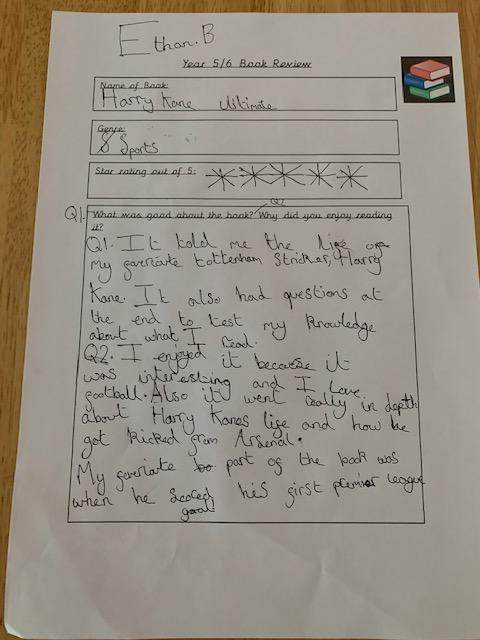 Ethan. B
Year 5/6 Book Review
Name of Book:
Harry Kane Ultimate
Genre:
Sports
Star rating out of 5:
Q2
Q1. What was good about the book? Why did you enjoy reading
it?
Q1. It told me the life of
my favriate tottenham Stricker, Harry
Kane. It also had questions at
the end to test my knowledge
about what I read.
Q2. I enjoyed it because it
was interesting and I love
football. Also it went really in depth
about Harry Kanes life and how he
got kicked from Arsenal.
My favriate part of the book was
when he scored his first premier league
goal